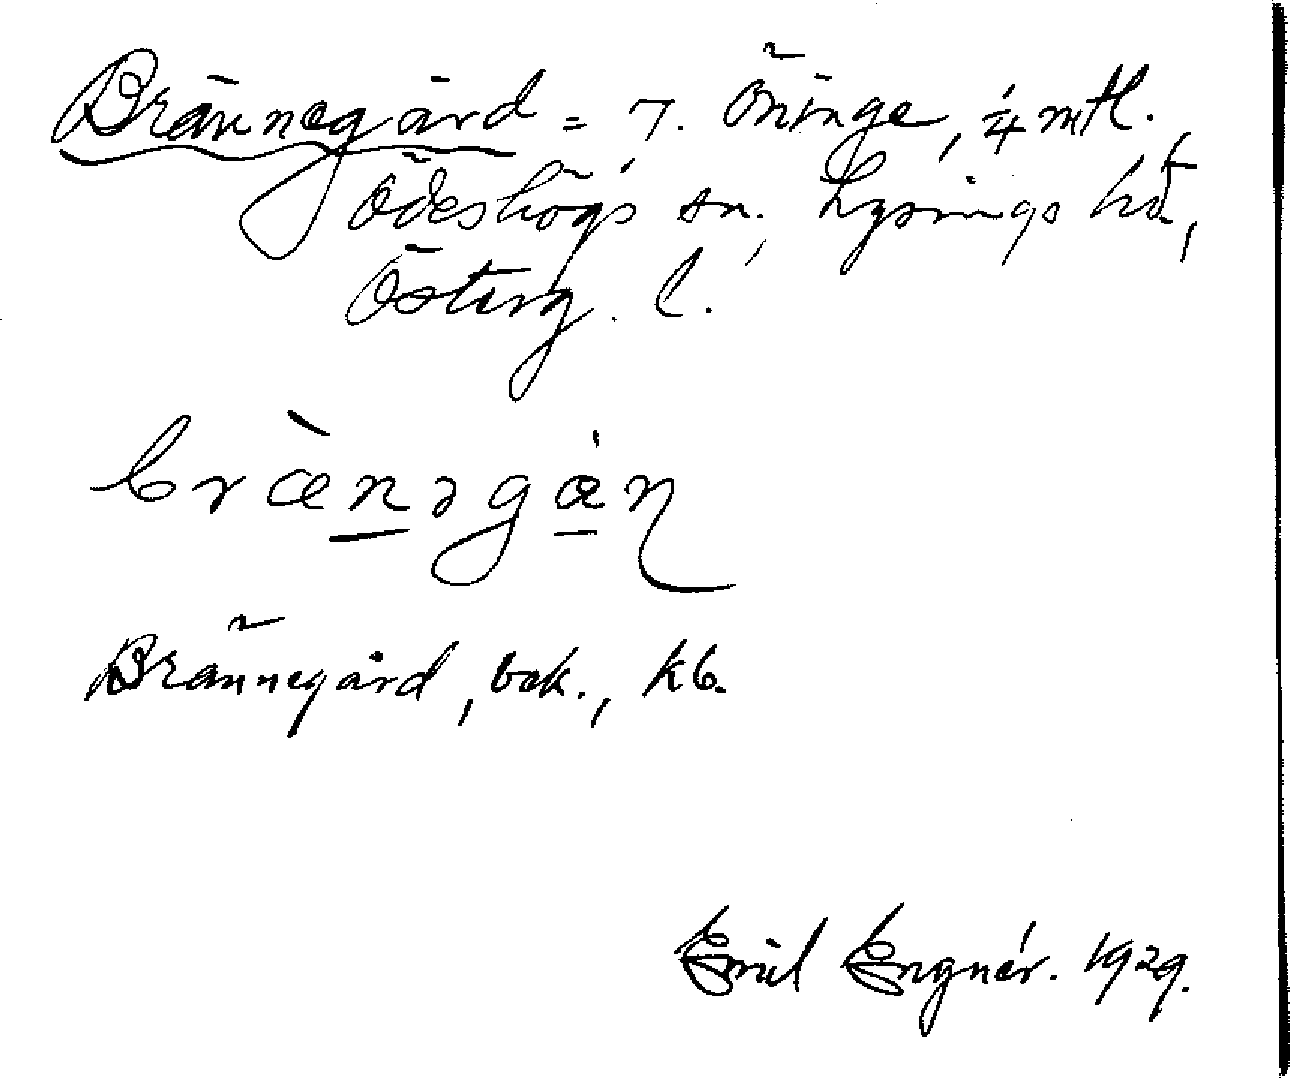 Brännegård = 7. Öninge, ¼ mtl.,
Ödeshögs sn., Lysings hd,
Österg. l.
bræ̀nəgan
Brännegård, bek., kb.
Emil Engnér. 1929.